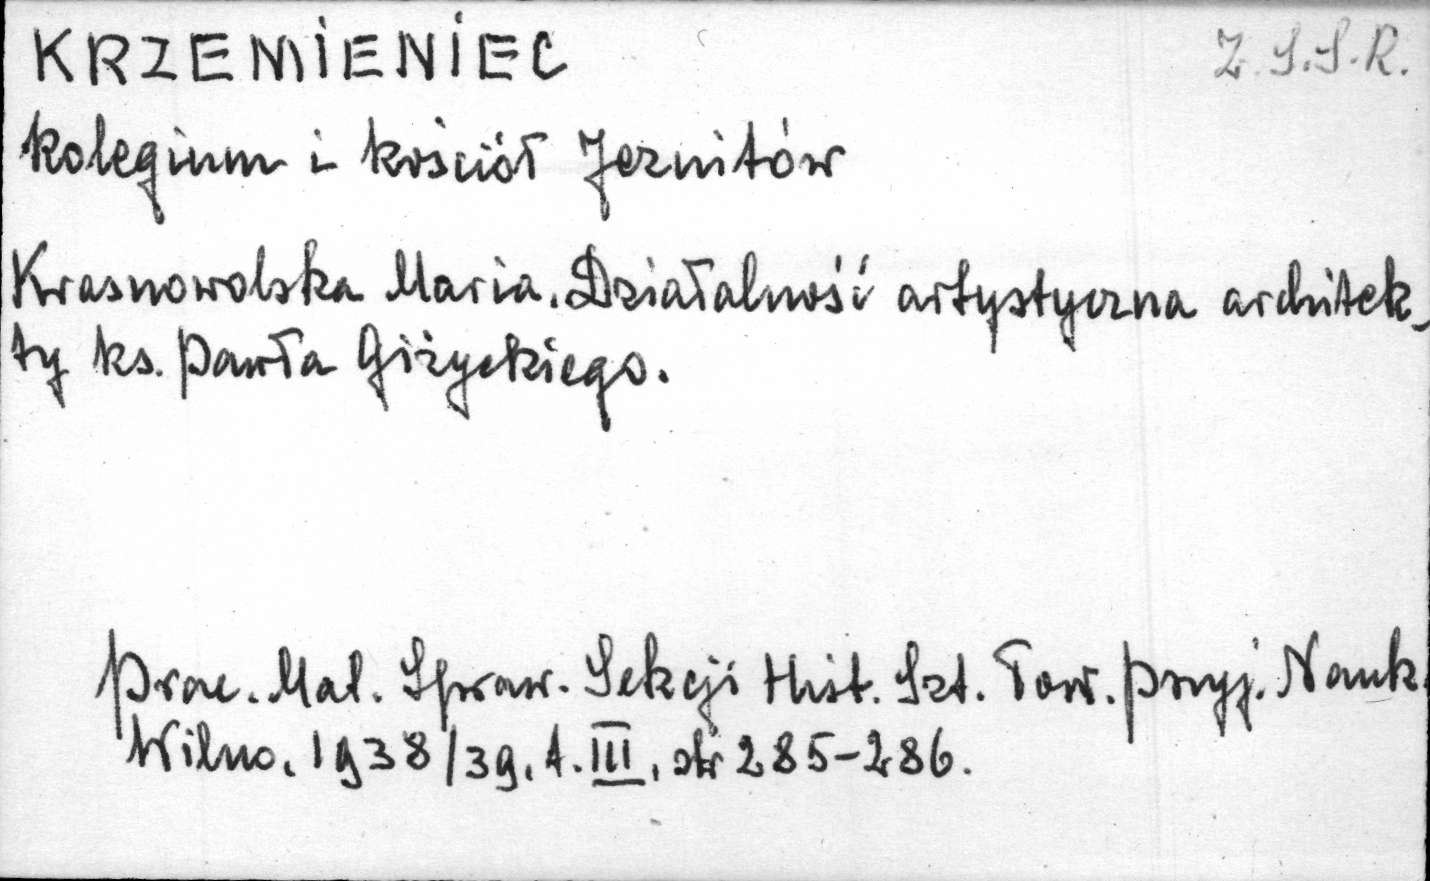 KRZEMIENIEC Z.S.S.R.
kolegium i kościół Jezuitów
Krasnowolska Maria. Działalność artystyczna architek-
ty ks. Pawła Giżyckiego.
Prac. Mat. Spraw. Sekcji Hist. Szt. Tow. Przyj. Nauk.
Wilno. 1938/39. t. III. str 285-286.